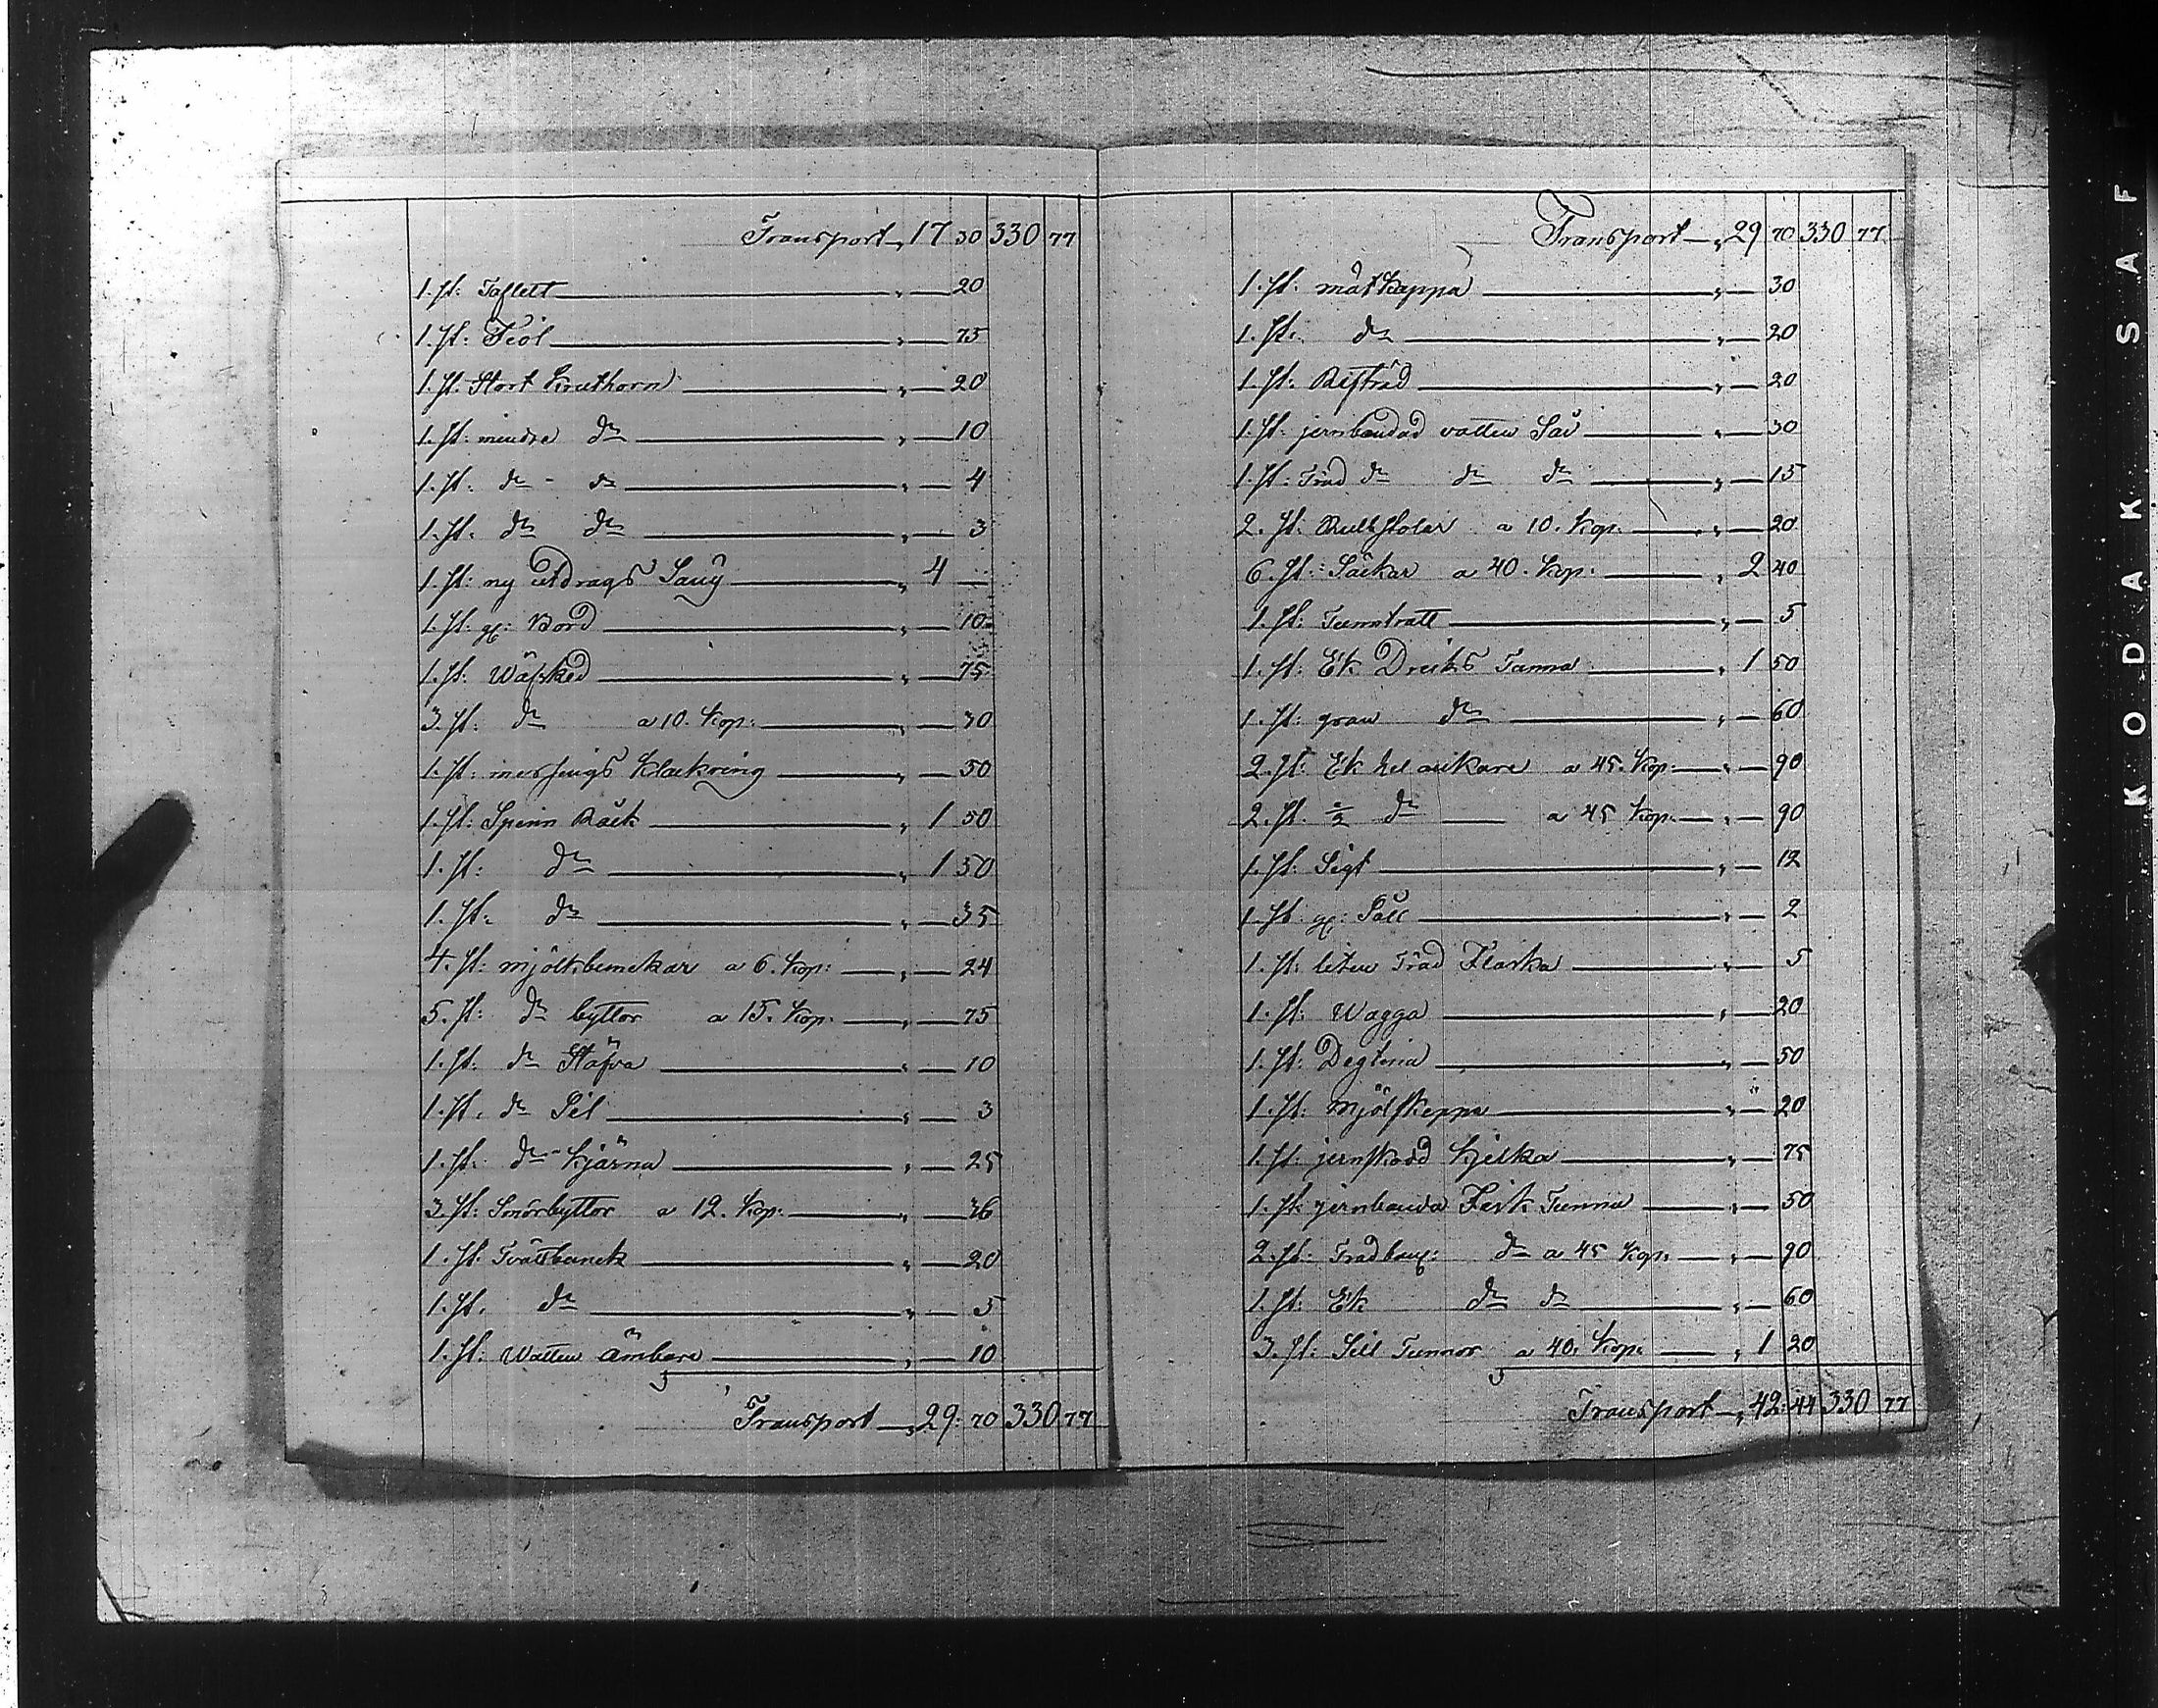 Transport „ 17 30 330 77
1. st: Taflett „ — 20
1. st: Fiol „ — 75
1. st. Stort Kruthorn „ — 20
1. st: mindre do „ — 10
1. st. do - do „ — 4
1. st. do do „ — 3
1. st: ny utdrags Säng „ 4 —
1. st. gl: Bord „ — 10
1. st. Wäfsked „ — 75
3. st: do a 10. Kop: „ — 30
1. st: messings Klockring „ — 50
1. st: Spinn Råck „ 1 50
1. st: do „ 1 50
1. st. do „ — 35
4. st: mjölkbunckar a 6. Kop: „ — 24
5. st: do byttor a 15. Kop. „ — 75
1. st. do Stäfva „ — 10
1. st. do Sil „ — 3
1. st. do Kjärna „ — 25
3. st: Smörbyttor a 12. Kop: „ — 36
1. st. Tvättbunck „ — 20
1. st. do „ — 5
1. st: Watten ämbare „ — 10
Transport „ 29: 70 330 77
Transport „ 29 70 330 77
1. st: måtkappa „ — 30
1. st. do „ — 20
1. st: „ — 20
1. st: jernbandad vatten Så „ — 30
1. st: Träd do do do „ — 15
2. st: stolar a 10. Kop. „ — 20
6. st: Säckar a 40. Kop: „ 2 40
1. st: Tunntratt „ — 5
1. st: Ek Dricks Tunna „ 1 50
1. st: gran do „ — 60
2. st: Ek hel ankare a 45. Kop. „ — 90
2. st. ½ do a 45 Kop. „ — 90
1. st: Sigt „ — 12
1. st. gl: Såll „ — 2
1. st: liten Träd Flaska „ — 5
1. st: Wagga „ — 20
1. st: Degtina „ — 50
1. st: mjölskeppa „ — 20
1. st: jernskodd Kjelka „ — 75
1. st. jernbanda Fisk Tunna „ — 50
2. st: Trädban: do a 45 Kop. „ — 90
1. st: Ek do do „ — 60
3. st: Sill Tunnor a 40. Kop. „ 1 20
Transport „ 42: 44 330 77
KODAK SAF